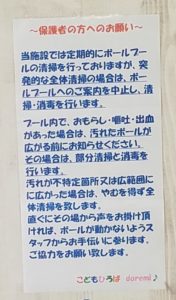 ～保護者の方へのお願い～
当施設では定期的にボールプール
の清掃を行っておりますが、突
発的な全体清掃の場合は、ボー
ルプールへのご案内を中止し、清
掃・消毒を行います。
プール内で、おもらし・嘔吐・出血
があった場合は、汚れたボールが
広がる前にお知らせください。
その場合は、部分清掃と消毒を
行います。
汚れが不特定箇所又は広範囲に
に広がった場合は、やむを得ず全
体清掃を致します。
直ぐにその場から声をお掛け頂
ければ、ボールが動かないようス
タッフがお手伝いに参ります。
ご協力をお願い致します。
こどもひろば doremi♪